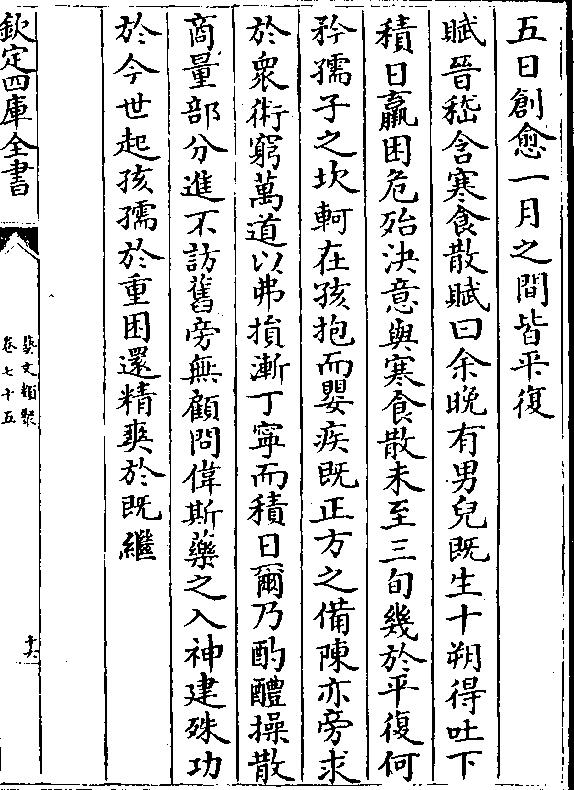 五日創愈一月之間皆平復
賦晉嵇含寒食散賦曰余晩有男兒既生十朔得吐下
積日羸困危殆決意與寒食散未至三旬幾於平復何
矜孺子之坎軻在孩抱而嬰疾既正方之備陳亦旁求
於衆術窮萬道以弗損漸丁寧而積日爾乃酌醴操散
商量部分進不訪舊旁無顧問偉斯藥之入神建殊功
於今世起孩孺於重困還精爽於既繼
欽定四庫全書
藝文類聚
卷七十五
十六